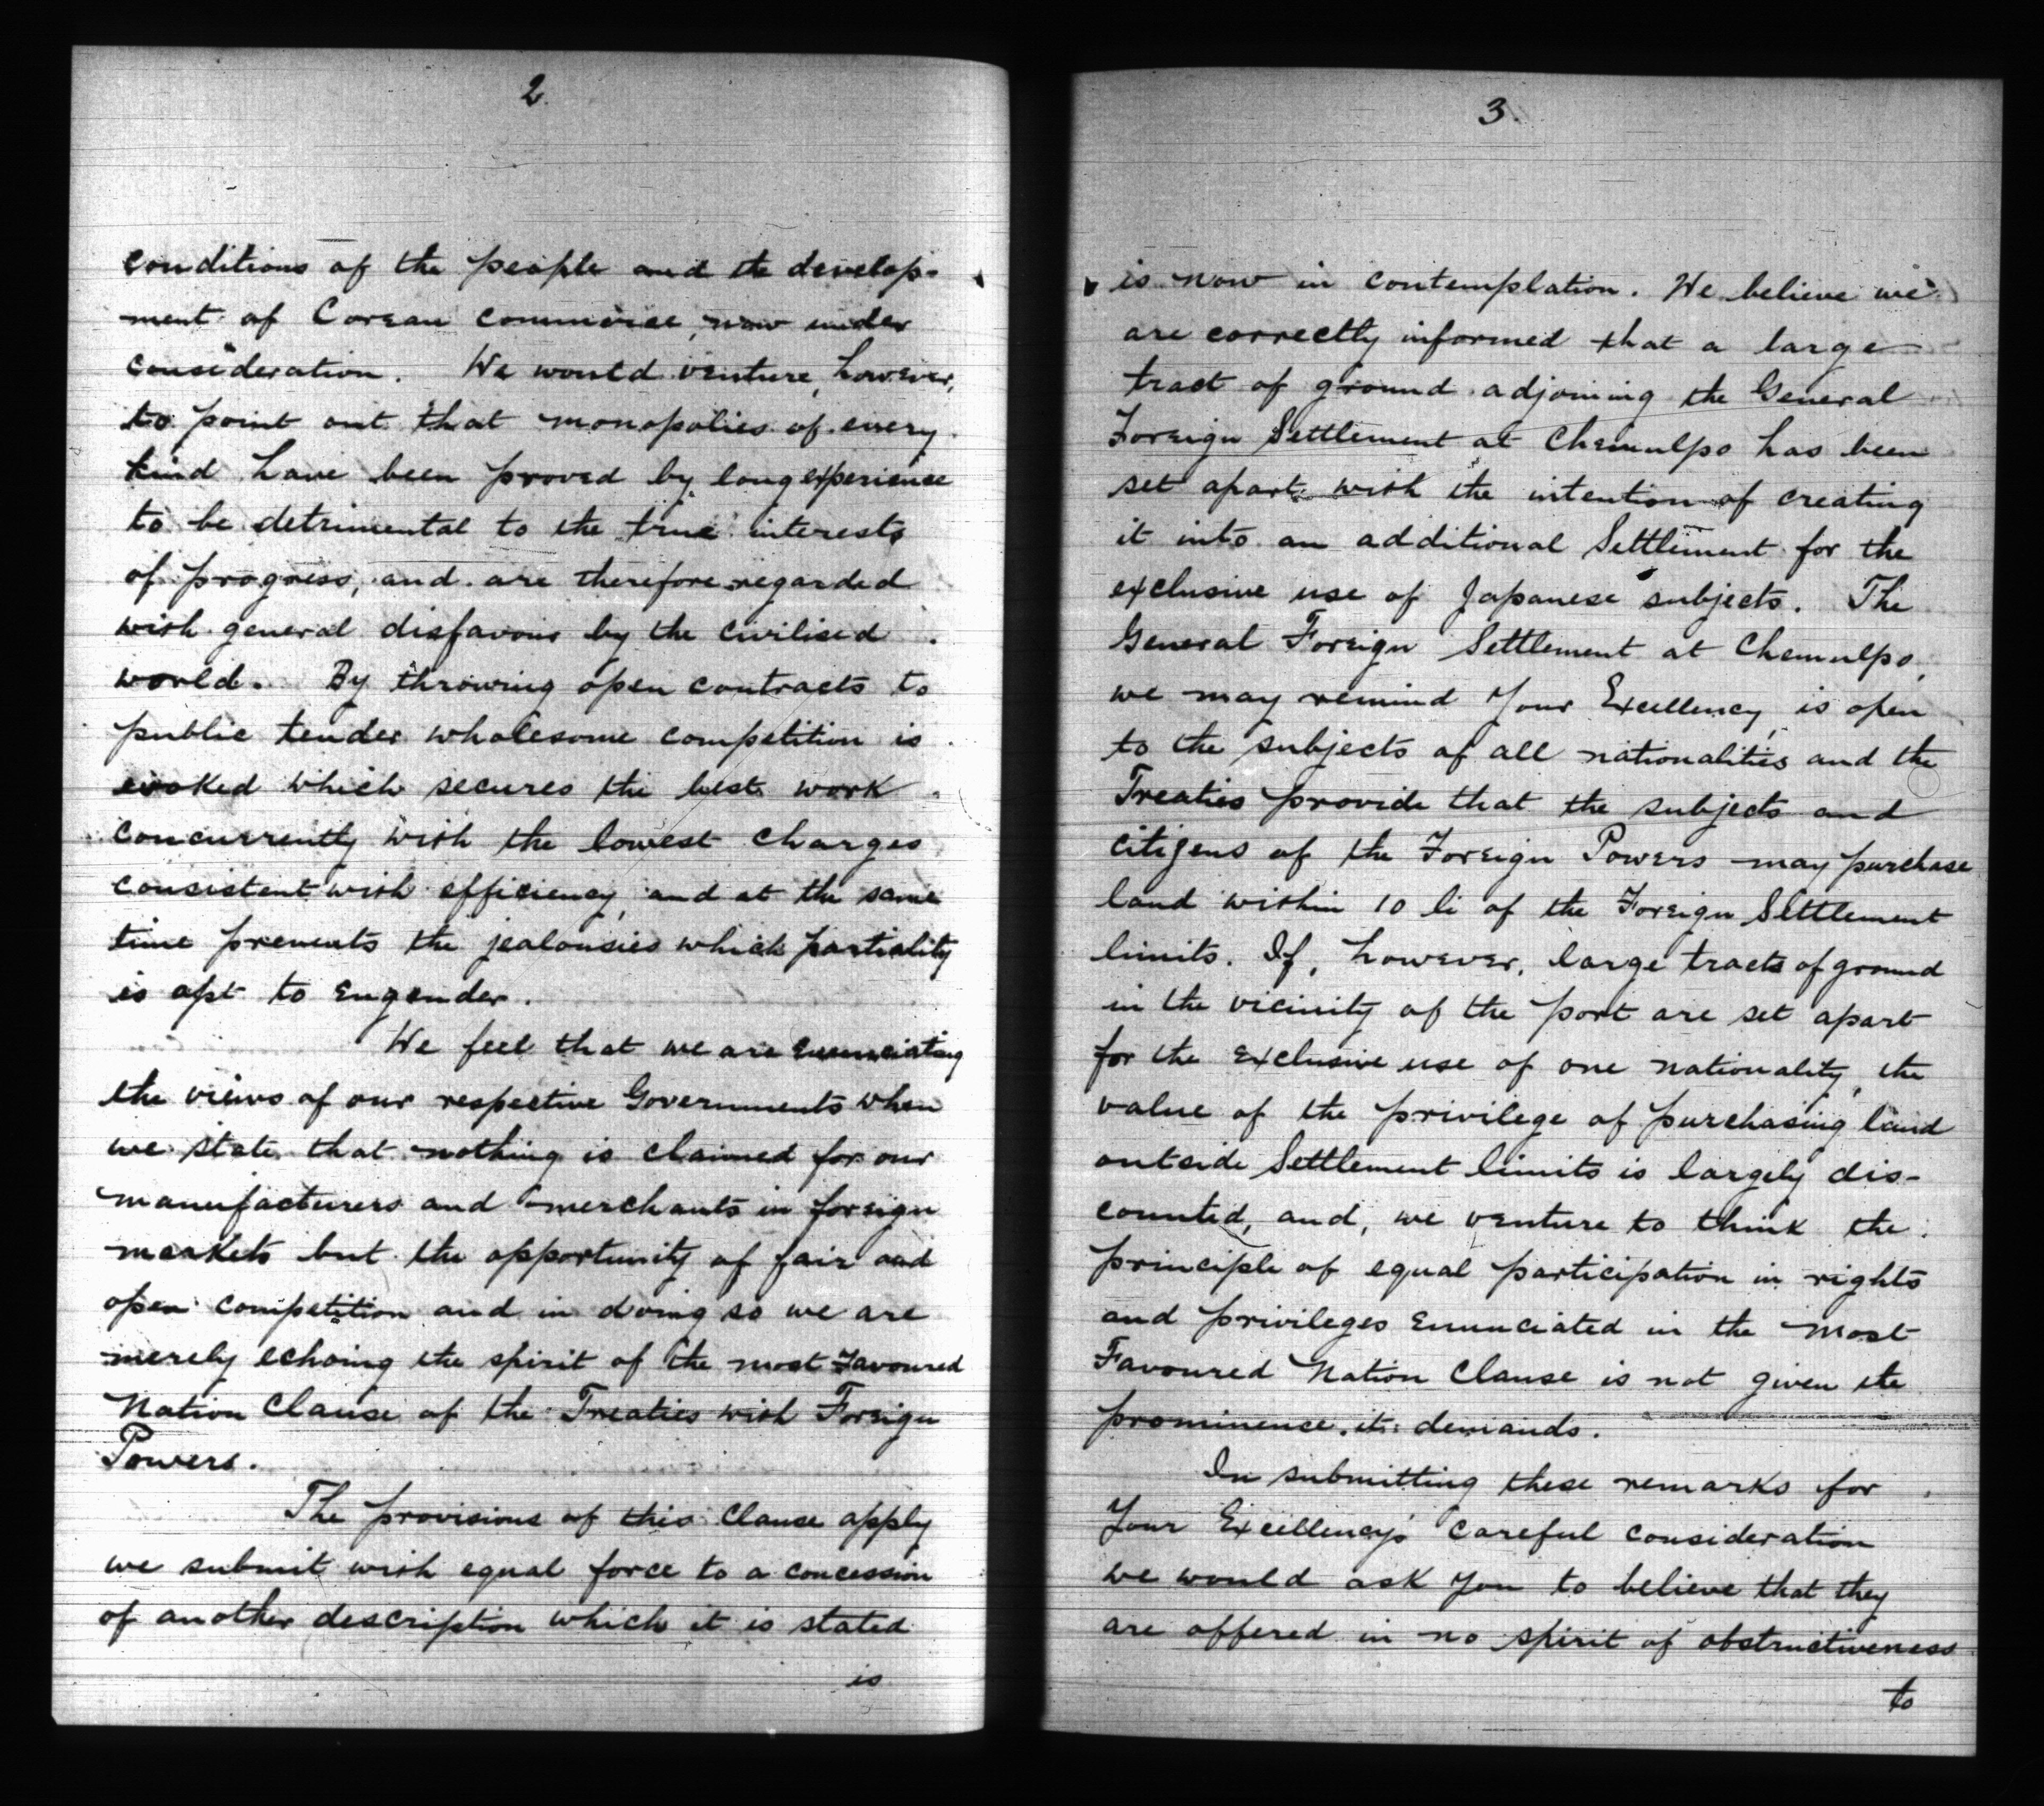 2.
conditions of the people and the develop-
ment of Corean commerce, now under
consideration. We would venture, however,
to point out that monopolies of every
kind have been proved by long experience
to be detrimental to the true interests
of progress, and are therefore regarded
with general disfavour by the civilised
world. By throwing open contracts to
public tender wholesome competition is
evoked which secures the best work
concurrently with the lowest charges
consistent with efficiency, and at the same
time prevents the jealousies which partiality
is apt to engender.
We feel that we are enunciating
the views of our respective Governments when
we state that nothing is claimed for our
manufacturers and merchants in foreign
markets but the opportunity of fair and
open competition and in doing so we are
merely echoing the spirit of the most Favoured
Nation Clause of the Treaties with Foreign
Powers.
The provisions of this Clause apply
we submit with equal force to a concession
of another description which it is stated
is
3.
is now in contemplation. We believe we
are correctly informed that a large
tract of ground adjoining the General
Foreign Settlement at Chemulpo has been
set apart with the intention of creating
it into an additional Settlement for the
exclusive use of Japanese subjects. The
General Foreign Settlement at Chemulpo,
we may remind Your Excellency, is open
to the subjects of all nationalities and the
Treaties provide that the subjects and
citizens of the Foreign Powers may purchase
land within 10 li of the Foreign Settlement
limits. If, however, large tracts of ground
in the vicinity of the port are set apart
for the exclusive use of one nationality, the
value of the privilege of purchasing land
outside Settlement limits is largely dis-
counted, and, we venture to think the
principle of equal participation in rights
and privileges enunciated in the Most
Favoured Nation Clause is not given the
prominence it demands.
In submitting these remarks for
Your Excellency's careful consideration
we would ask you to believe that they
are offered in no spirit of obstructiveness
to